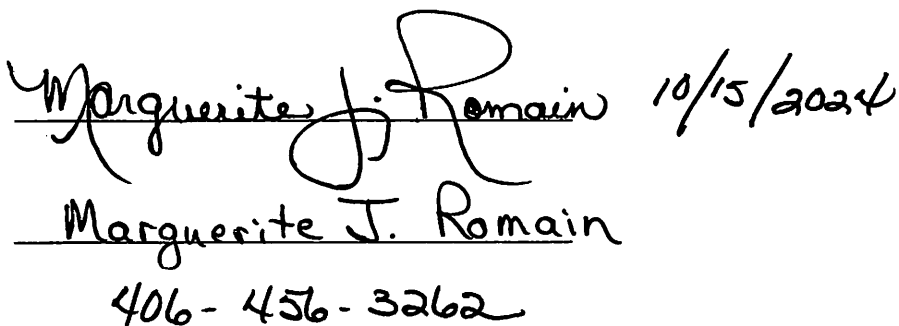 Marguerite J. Romain 10/15/2024
Marguerite J. Romain
406-456-3262